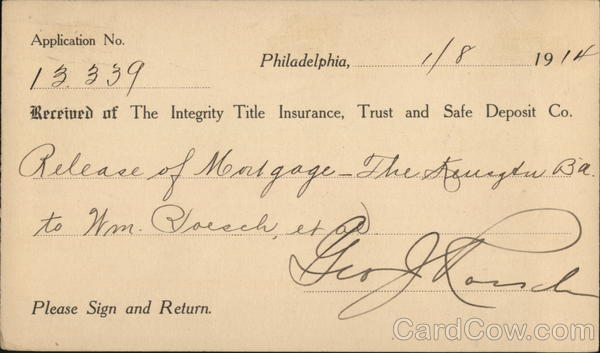 Application No.
13.339
Philadelphia, 1/8 1914
Received of The Integrity Title Insurance, Trust and Safe Deposit Co.
Release of Mortgage - The Ba.
to Wm. et al.
Geo J
Please Sign and Return.
CardCow.com